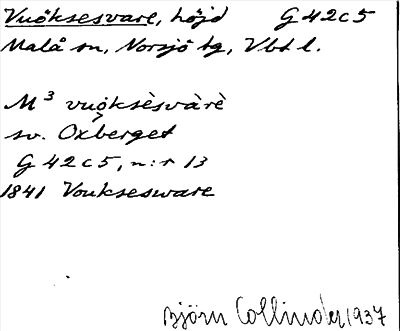 Vuöksesvare, höjd G 42 c 5
Malå sn, Norsjö tg, Vbt l.
M³ vuo̭ksèsvàrè
sv. Oxberget
G 42 c 5, n:r 13
1841 Vouksesware
Björn Collinder 1937